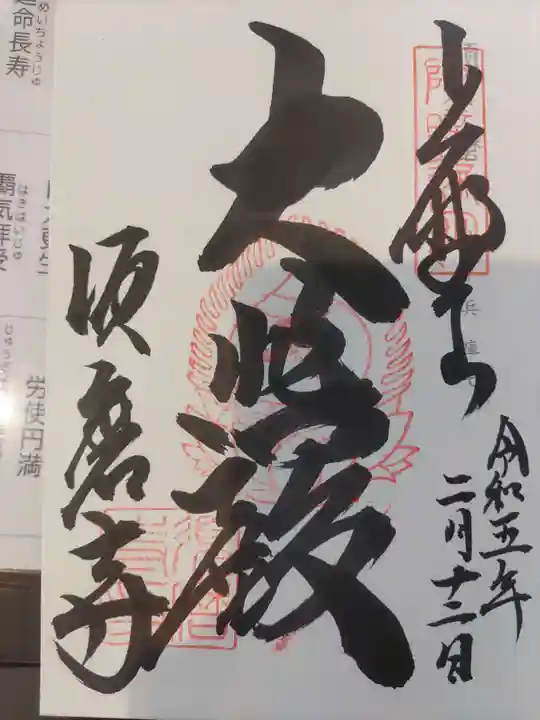 奉拝
令和五年
二月十二日
大悲殿
須磨寺
兵庫
延命長寿
めいちょうじゅ
覇気拝受
はきはいじゅ
労使円満